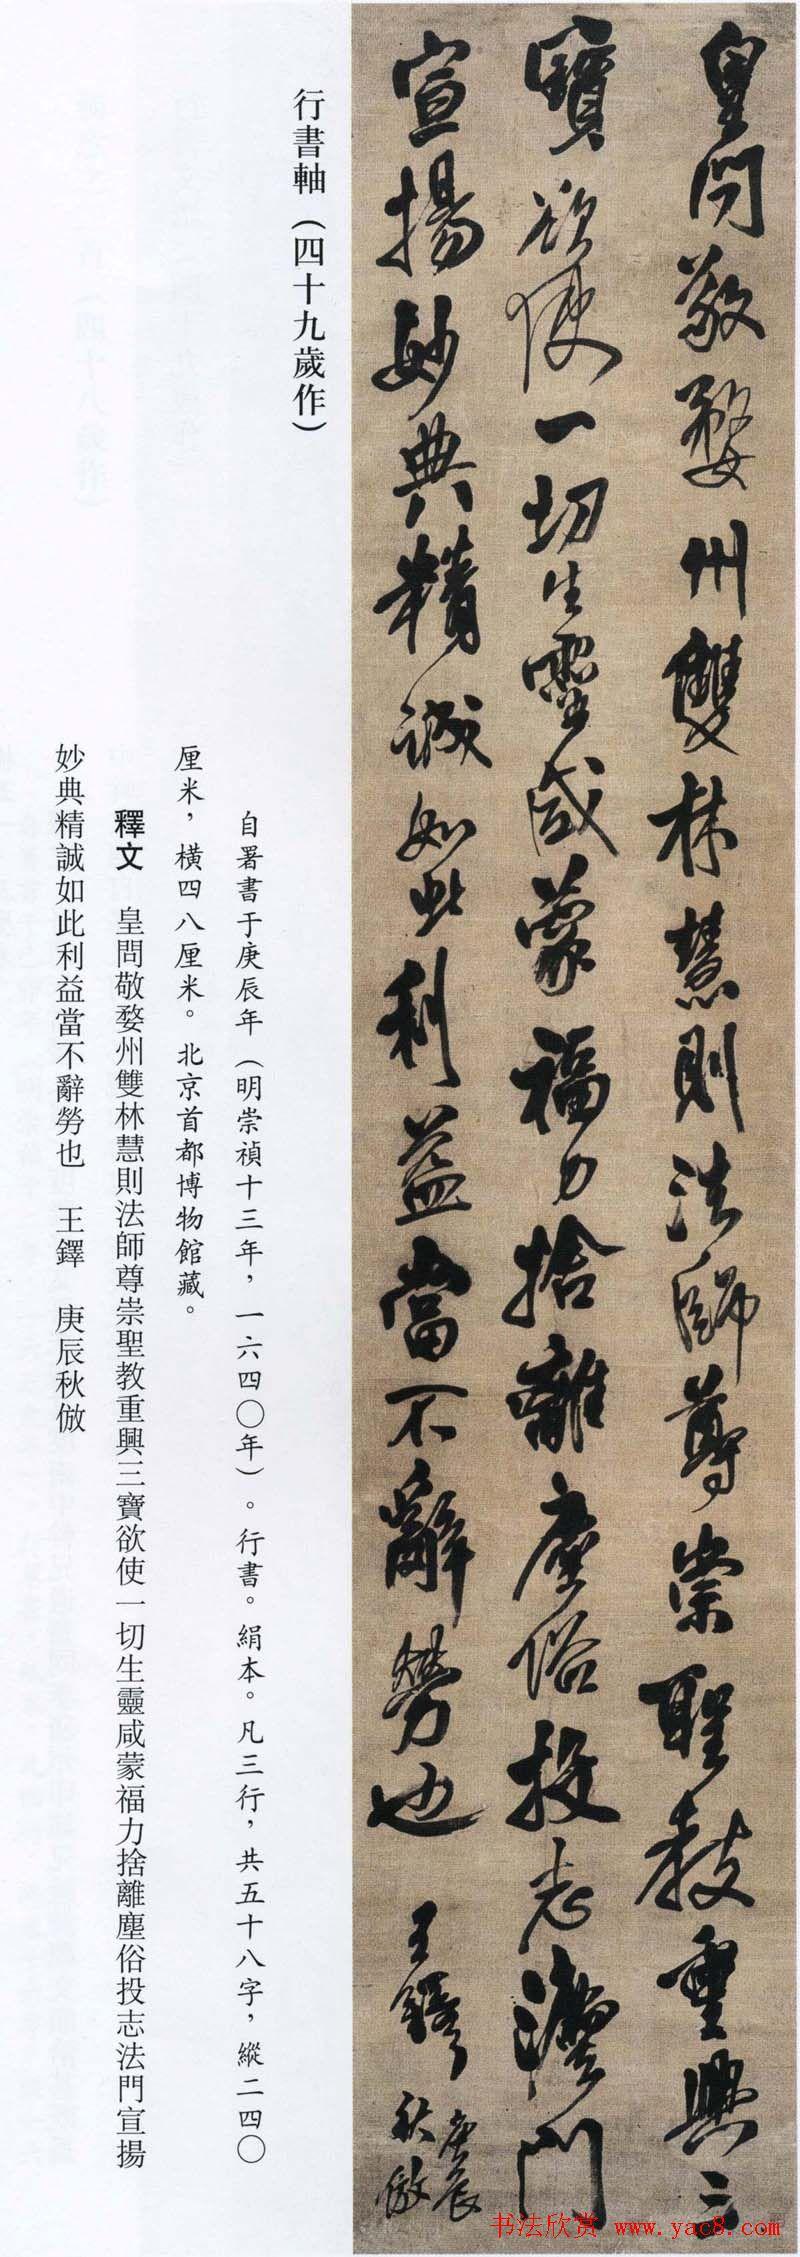 皇問敬婺州雙林慧則法師尊崇聖教重興三
寶欲使一切生靈咸蒙福力捨離塵俗投志灋門
宣揚妙典精誠如此利益當不辭勞也 王鐸 庚辰
秋倣
行書軸（四十九歲作）
自署書于庚辰年（明崇禎十三年，一六四〇年）。行書。絹本。凡三行，共五十八字，縱二四〇
厘米，橫四八厘米。北京首都博物館藏。
釋文 皇問敬婺州雙林慧則法師尊崇聖教重興三寶欲使一切生靈咸蒙福力捨離塵俗投志法門宣揚
妙典精誠如此利益當不辭勞也 王鐸 庚辰秋倣
书法欣赏 www.yac8.com